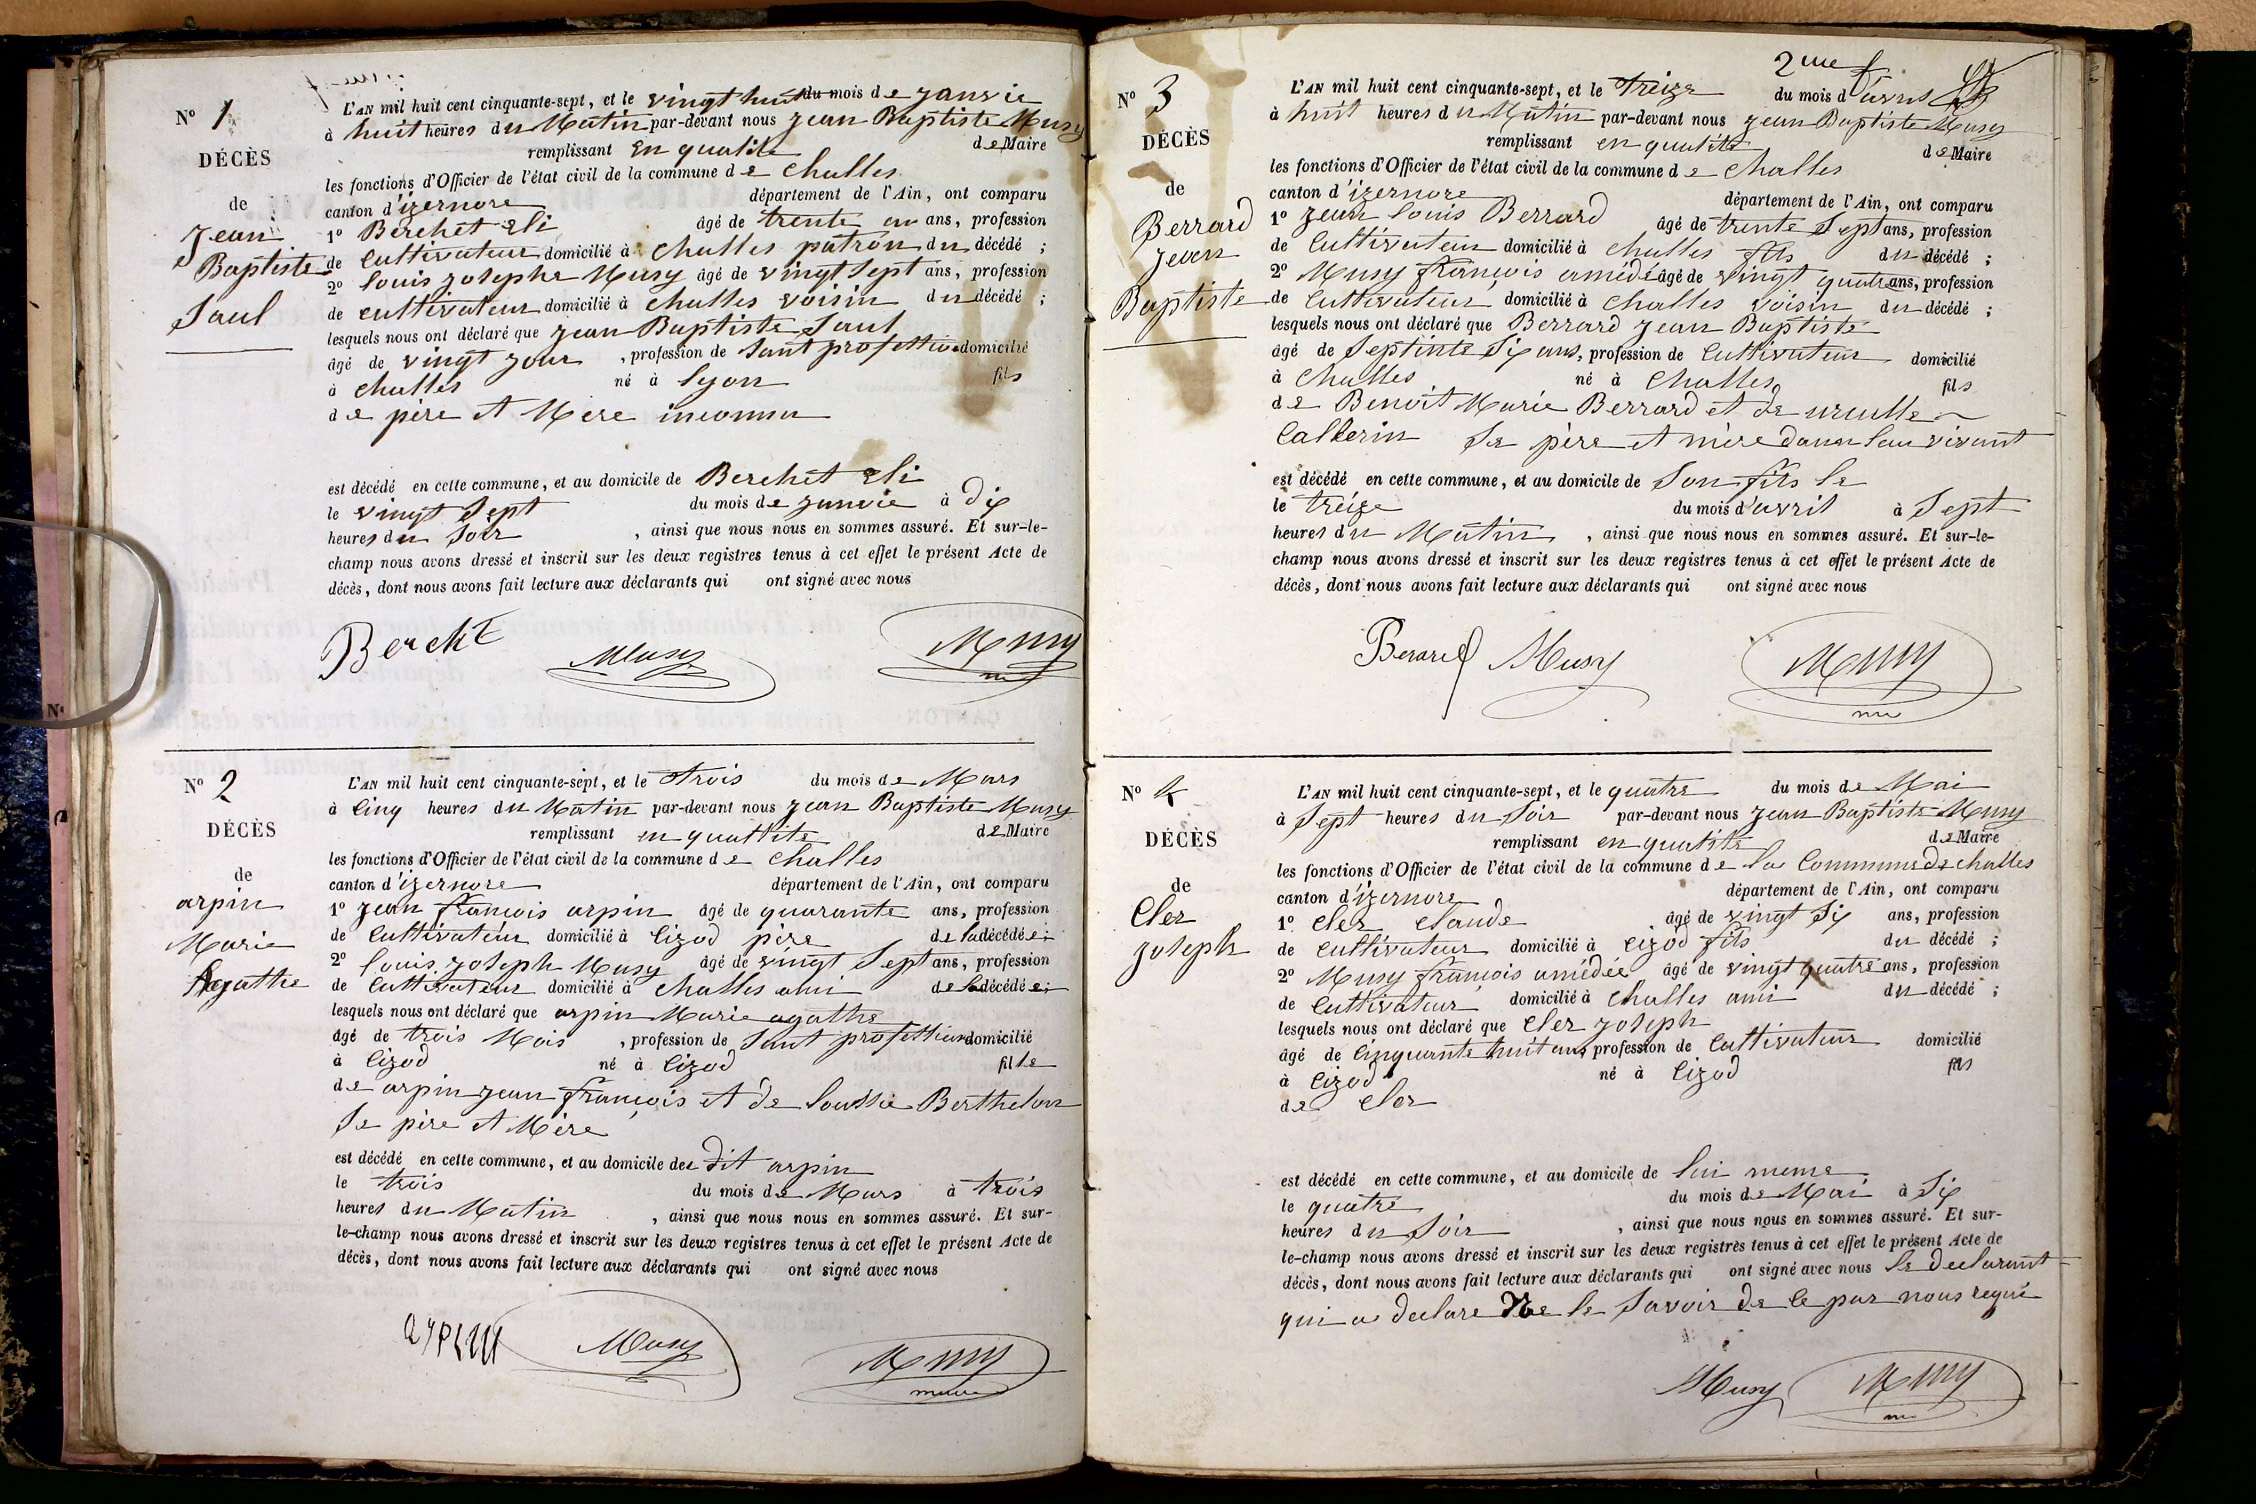 Nº 1
DÉCÈS
de
Jean
Baptiste
Saul
L'AN mil huit cent cinquante-sept, et le vingt huit du mois de janvie
à huit heures du Matin par-devant nous jean Baptiste Musy
remplissant en qualite de Maire
les fonctions d'Officier de l'état civil de la commune de Challes
canton d'izernore département de l'Ain, ont comparu
1º Berchet Eli âgé de trente un ans, profession
de Cultivateur domicilié à Challes patron du décédé ;
2º louis josephe Musy âgé de vingt sept ans, profession
de cultivateur domicilié à Challes voisin du décédé ;
lesquels nous ont déclaré que jean Baptiste Saul
âgé de vingt jour , profession de sant profession domicilié
à challes né à lyon fils
de père et Mere inconnu
est décédé en cette commune, et au domicile de Berchet Eli
le vingt sept du mois de janvie à dix
heures du soir , ainsi que nous nous en sommes assuré. Et sur-le-
champ nous avons dressé et inscrit sur les deux registres tenus à cet effet le présent Acte de
décès, dont nous avons fait lecture aux déclarants qui ont signé avec nous
Berchet Musy Musy
Nº 2
DÉCÈS
de
arpin
Marie
Agathe
L'AN mil huit cent cinquante-sept, et le trois du mois de Mars
à Cinq heures du Matin par-devant nous jean Baptiste Musy
remplissant en qualite de Maire
les fonctions d'Officier de l'état civil de la commune de Challes
canton d'izernore département de l'Ain, ont comparu
1º jean françois arpin âgé de quarante ans, profession
de Cultivateur domicilié à Cizod père de la décédée ;
2º louis joseph Musy âgé de vingt sept ans, profession
de Cultivateur domicilié à Challes ami de la décédée ;
lesquels nous ont déclaré que arpin Marie agathe
âgé de trois Mois , profession de sant profession domicilié
à Cizod né à Cizod fille
de arpin jean françois et de Berthelon
se père et Mère
est décédé en cette commune, et au domicile deu dit arpin
le trois du mois de Mars à trois
heures du Matin , ainsi que nous nous en sommes assuré. Et sur-
le-champ nous avons dressé et inscrit sur les deux registres tenus à cet effet le présent Acte de
décès, dont nous avons fait lecture aux déclarants qui ont signé avec nous
arpin Musy Musy
maire
2me f
Nº 3
DÉCÈS
de
Berrard
Jean
Baptiste
L'AN mil huit cent cinquante-sept, et le treize du mois d'avril
à huit heures du Matin par-devant nous jean Baptiste Musy
remplissant en qualité de Maire
les fonctions d'Officier de l'état civil de la commune de Challes
canton d'izernore département de l'Ain, ont comparu
1º jean louis Berrard âgé de trente sept ans, profession
de Cultivateur domicilié à Challes fils du décédé ;
2º Musy françois amédé âgé de vingt quatre ans, profession
de Cultivateur domicilié à Challes voisin du décédé ;
lesquels nous ont déclaré que Berrard jean Baptiste
âgé de septinte six ans, profession de Cultivateur domicilié
à Challes né à Challes fils
de Benoit Marie Berrard et de
Se père et mère vivant
est décédé en cette commune, et au domicile de son fils le
le treize du mois d'avril à sept
heures du Matin , ainsi que nous nous en sommes assuré. Et sur-le-
champ nous avons dressé et inscrit sur les deux registres tenus à cet effet le présent Acte de
décès, dont nous avons fait lecture aux déclarants qui ont signé avec nous
Berard Musy Musy
Nº 4
DÉCÈS
de
Cler
joseph
L'AN mil huit cent cinquante-sept, et le quatre du mois de Mai
à sept heures du soir par-devant nous jean Baptiste Musy
remplissant en qualité de Maire
les fonctions d'Officier de l'état civil de la commune de la Commune de challes
canton d'izernore département de l'Ain, ont comparu
1º Cler Claude âgé de vingt six ans, profession
de cultivateur domicilié à cizod fils du décédé ;
2º Musy françois amédée âgé de vingt quatre ans, profession
de Cultivateur domicilié à Challes ami du décédé ;
lesquels nous ont déclaré que Cler joseph
âgé de Cinquante huit ans profession de Cultivateur domicilié
à Cizod né à Cizod fils
de Cler
est décédé en cette commune, et au domicile de lui meme
le quatre du mois de Mai à six
heures du soir , ainsi que nous nous en sommes assuré. Et sur-
le-champ nous avons dressé et inscrit sur les deux registres tenus à cet effet le présent Acte de
décès, dont nous avons fait lecture aux déclarants qui ont signé avec nous le declarant
qui a declare Ne le savoir de ce par nous requi
Musy Musy